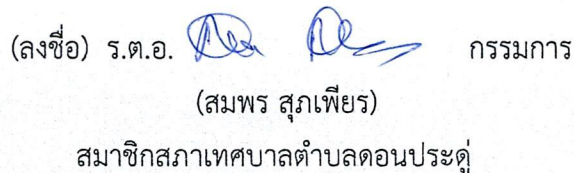 (ลงชื่อ) ร.ต.อ. กรรมการ
(สมพร สุภเพียร)
สมาชิกสภาเทศบาลตำบลดอนประดู่